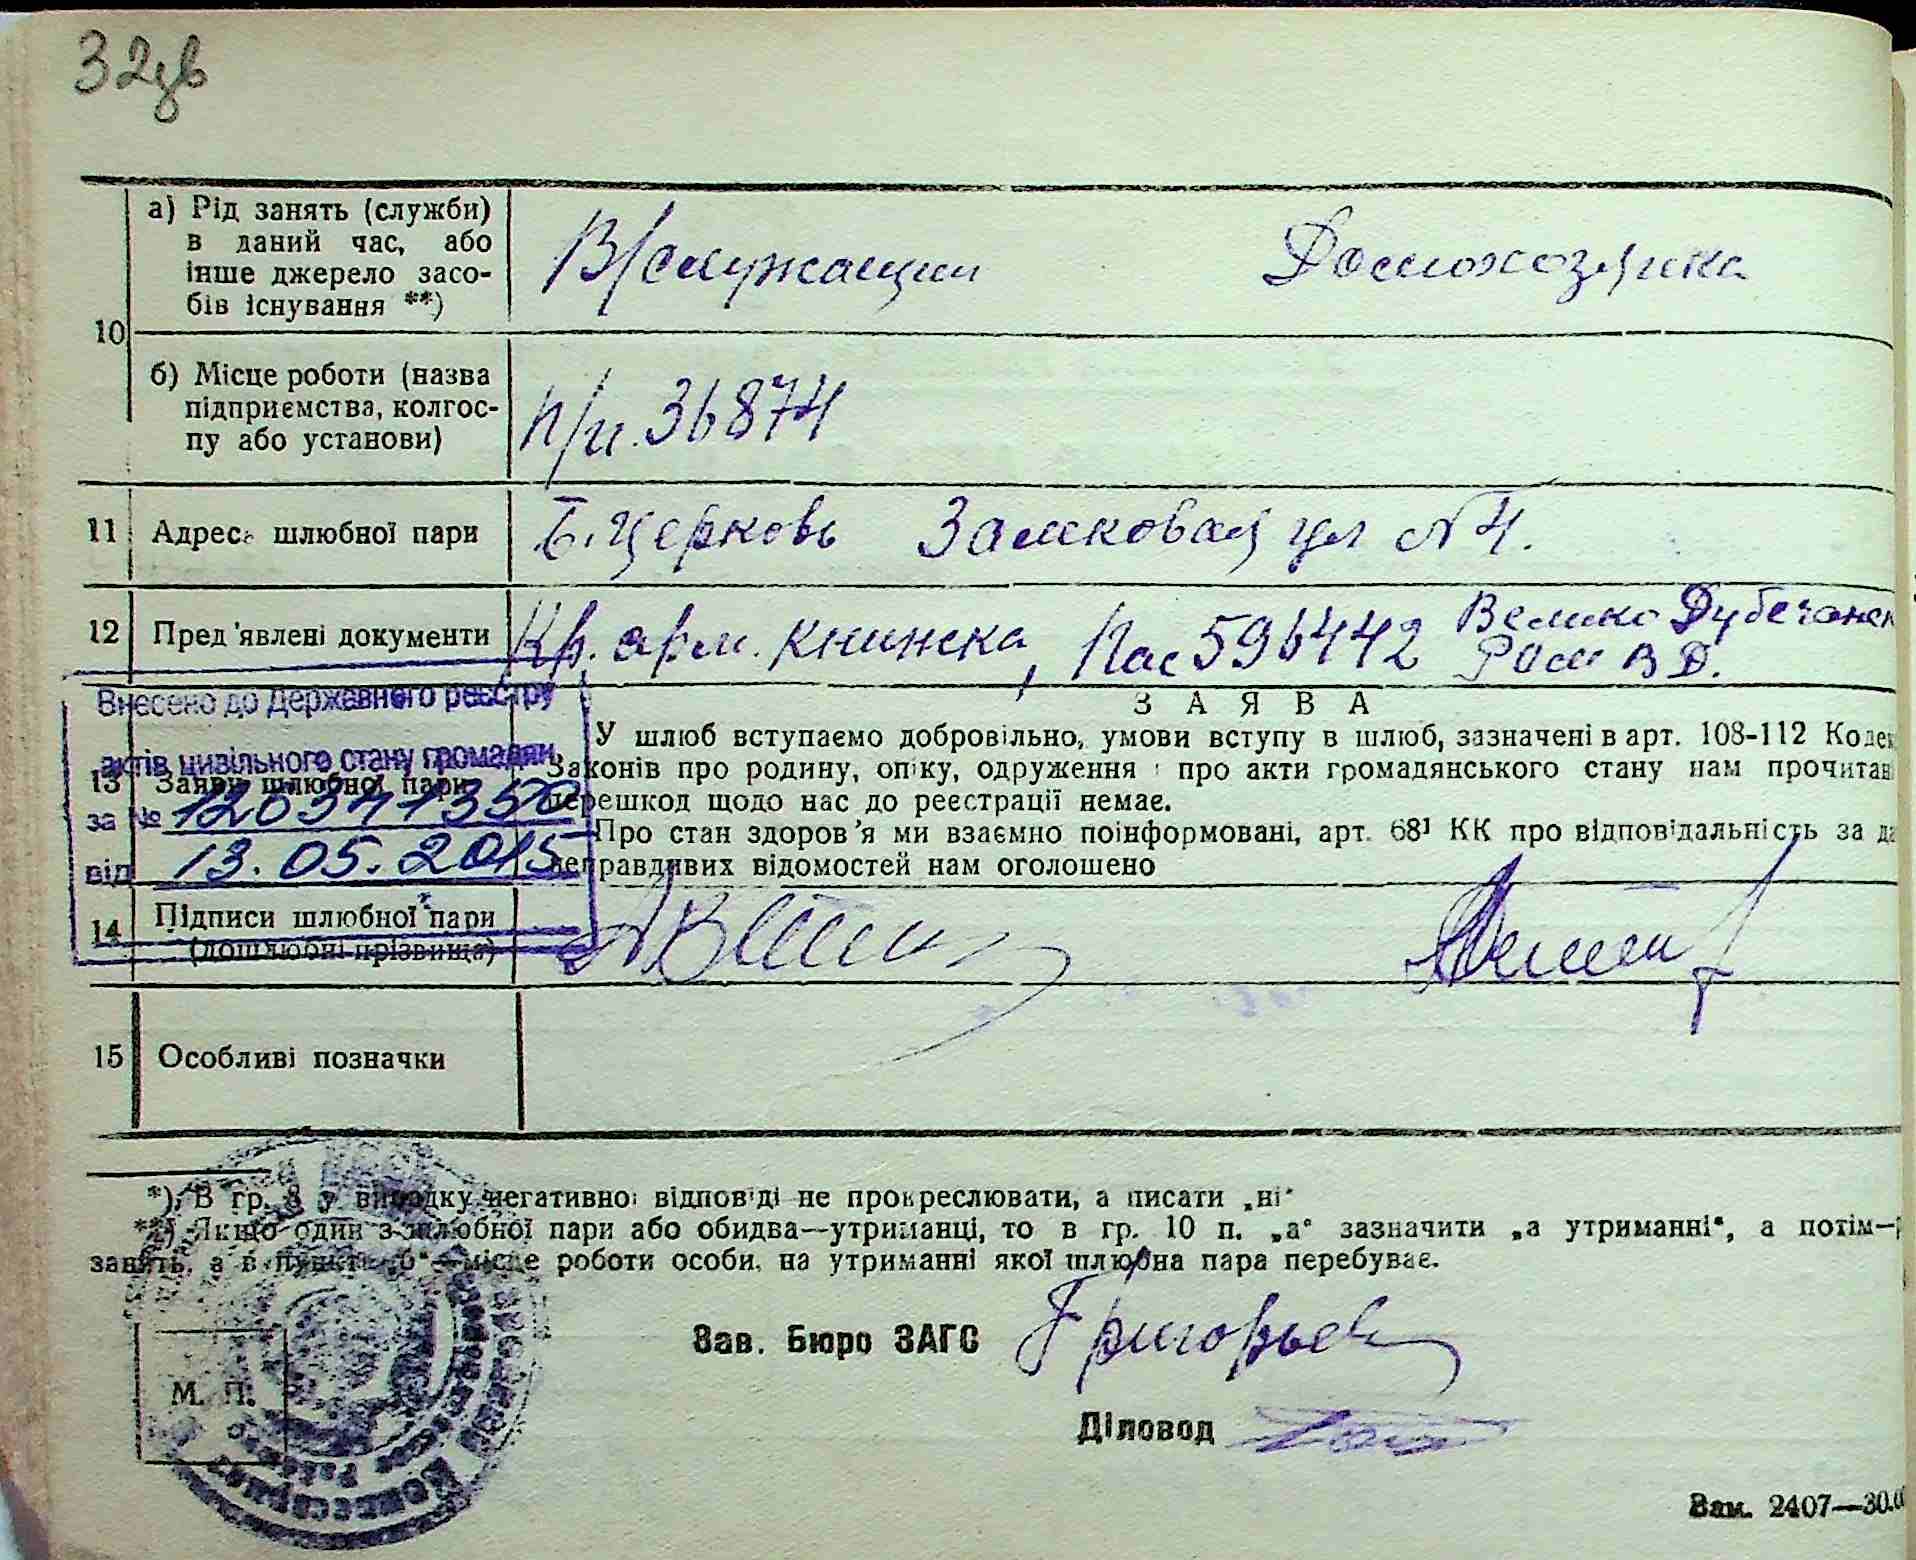 32зв
а) Рід занять (служби)
в даний час, або
інше джерело засо-
бів існування **)
В/служащий Домохозяйка
10
б) Місце роботи (назва
підприємства, колгос-
пу або установи)
п/я. 36874
11 Адреса шлюбної пари Б. Церковь Замковая ул № 4.
12 Пред'явлені документи Кр. арм. книжска, Пас 596442 Велико Дубечанск
РОМ ВД.
Внесено до Державного реєстру
актів цивільного стану громадян
за № 120341350
від 13.05.2015
ЗАЯВА
13 Заява шлюбної пари
У шлюб вступаємо добровільно, умови вступу в шлюб, зазначені в арт. 108-112 Кодек
Законів про родину, опіку, одруження і про акти громадянського стану нам прочитан
перешкод щодо нас до реєстрації немає.
Про стан здоров'я ми взаємно поінформовані, арт. 68¹ КК про відповідальність за да
неправдивих відомостей нам оголошено
14 Підписи шлюбної пари
(дошлюбні прізвища)
15 Особливі позначки
*) В гр. 8 у випадку негативної відповіді не прокреслювати, а писати „ні"
**) Якщо один з шлюбної пари або обидва—утриманці, то в гр. 10 п. „а" зазначити „а утриманні", а потім—р
занять, а в пункті „б"—місце роботи особи, на утриманні якої шлюбна пара перебуває.
Зав. Бюро ЗАГС Григорьев
М. П.
Діловод
Зам. 2407—30.0